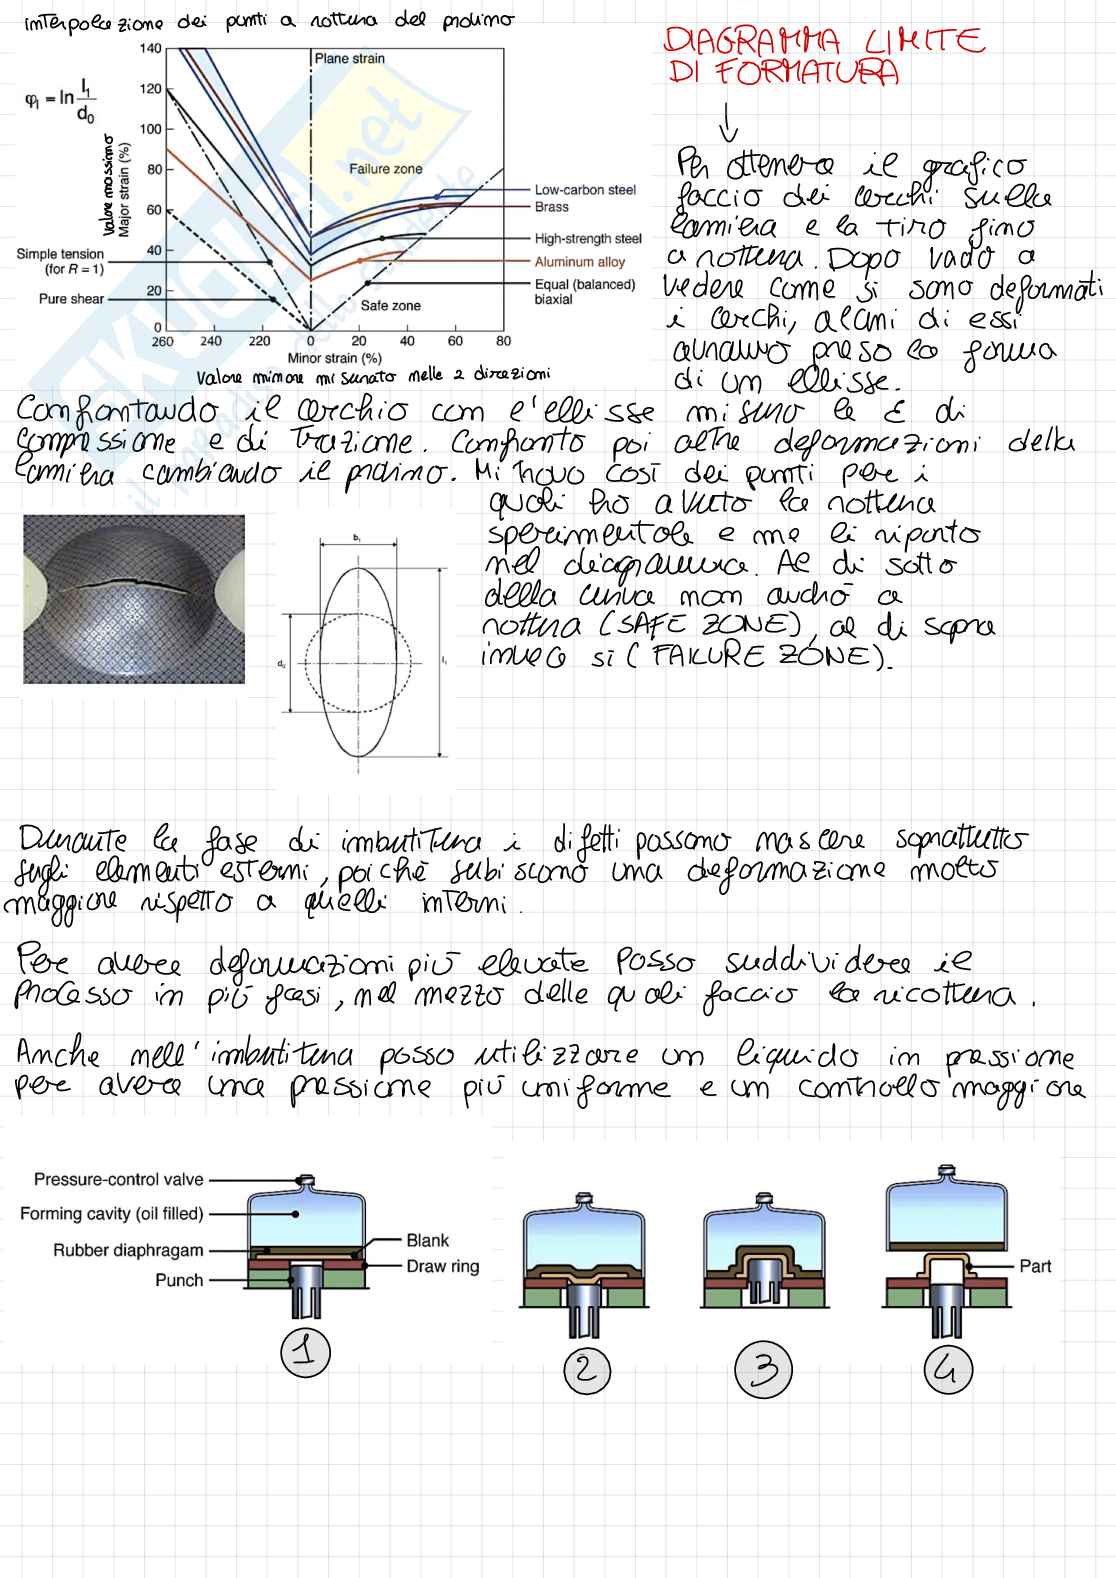 interpolazione dei punti a rottura del provino
DIAGRAMMA LIMITE
DI FORMATURA
φ₁ = ln l₁/d₀
Valore massimo
Major strain (%)
140
120
100
80
60
40
20
0
Plane strain
Failure zone
Safe zone
Low-carbon steel
Brass
High-strength steel
Aluminum alloy
Equal (balanced)
biaxial
Simple tension
(for R = 1)
Pure shear
260 240 220 0 20 40 60 80
Minor strain (%)
Valore minore misurato nelle 2 direzioni
Per ottenere il grafico
faccio dei cerchi sulla
lamiera e la tiro fino
a rottura. Dopo vado a
vedere come si sono deformati
i cerchi, alcuni di essi
avranno preso la forma
di un ellisse.
Confrontando il cerchio con l'ellisse misuro le ε di
compressione e di trazione. Confronto poi altre deformazioni della
lamiera cambiando il provino. Mi trovo così dei punti per i
quali ho avuto la rottura
sperimentale e me li riporto
nel diagramma. Al di sotto
della curva non andrò a
rottura (SAFE ZONE), al di sopra
invece si (FAILURE ZONE).
b₁
d₀
l₁
Durante la fase di imbutitura i difetti possono nascere soprattutto
sugli elementi esterni, poichè subiscono una deformazione molto
maggiore rispetto a quelli interni.
Per avere deformazioni più elevate posso suddividere il
processo in più fasi, nel mezzo delle quali faccio la ricottura.
Anche nell'imbutitura posso utilizzare un liquido in pressione
per avere una pressione più uniforme e un controllo maggiore
Pressure-control valve
Forming cavity (oil filled)
Rubber diaphragam
Punch
Blank
Draw ring
Part
1
2
3
4